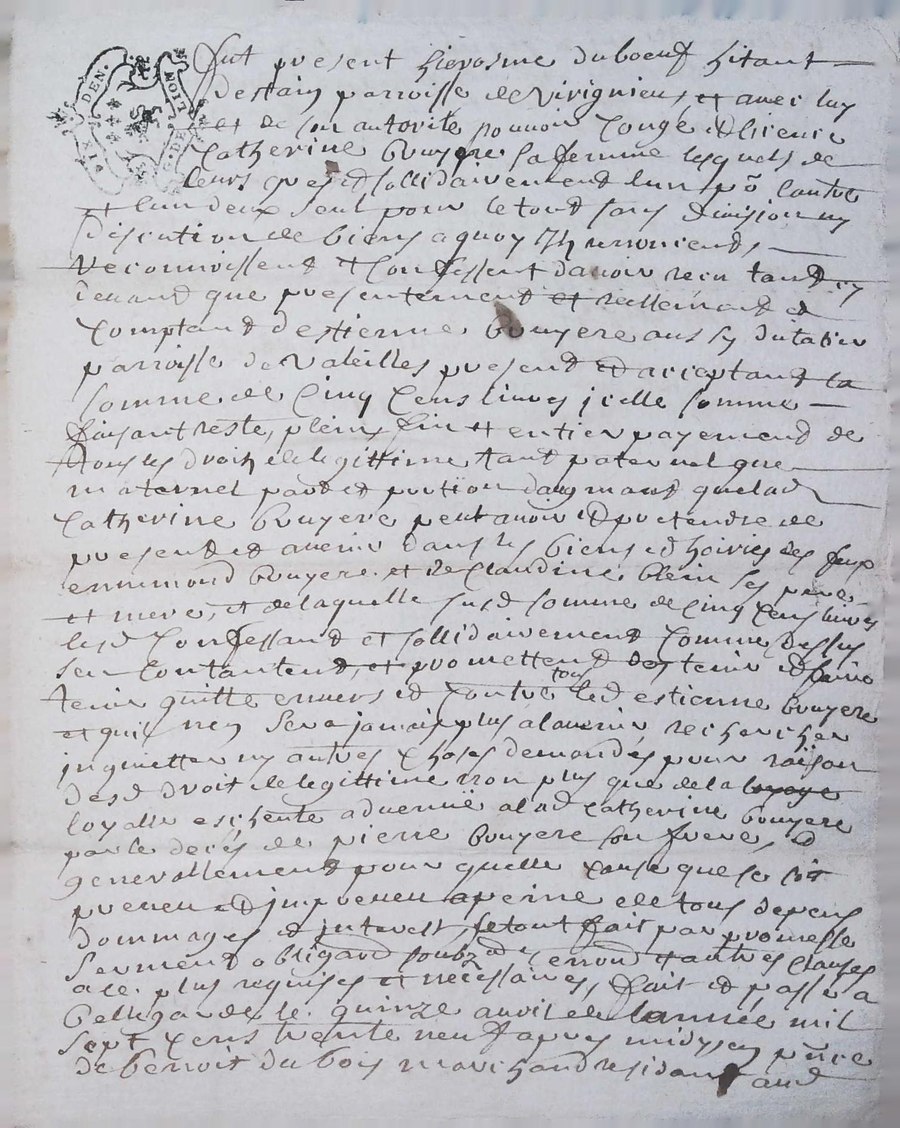 DIX DEN. DE LION
fut present hierosme duboeuf hitant
destaing parroisse de Virignieu, et avec luy
et de son autorite pouvoir conge et licence
Catherine bouyere sa femme lesquels de
leurs gres et sollidairement lun po lautre
et lun deux seul pour le tout sans division ny
discution de biens a quoy ils renoncent,
reconnoissent et confessent davoir receu tant cy
devant que presentement et reellement et
comptant destienne bouyere aussy dit
parroisse de Valeilles present et acceptant la
somme de Cinq Cens livres jcelle somme
faisant reste, plein, fin et entier payement de
tous les droits de legittime tant paternel que
maternel part et portion daugmant que lad
Catherine bouyere peut avoir et pretendre de
present et avenir dans les biens et hoiries des feux
ennimond bouyere et de Claudine blein ses pere
et mere, et de laquelle susd somme de Cinq Cens livres
lesd Confessant et sollidairement Comme dessus
sen contantent, et promettent de tenir et faire
tenir quitte envers et contre tous led estienne bouyere
et quil nen sera jamais plus a lavenir rechercher
jnquietter ny autres choses demandes pour raison
desd droit de legittime non plus que de la
loyalle escheute advenuë a lad Catherine bouyere
par le deces de pierre bouyere son frere, et
generallement pour quelle cause que se soit
preveu et jmpreveu a peine de tous depens
dommages et jnterest, le tout fait par promesse
serment obligeant soubz et autres clauses
a ce plus requises et necessaires, fait et passe a
bellegarde le quinze avril de lannée mil
sept Cens trente neuf apres midy en pnce
de benoit dubois marchand residant aud